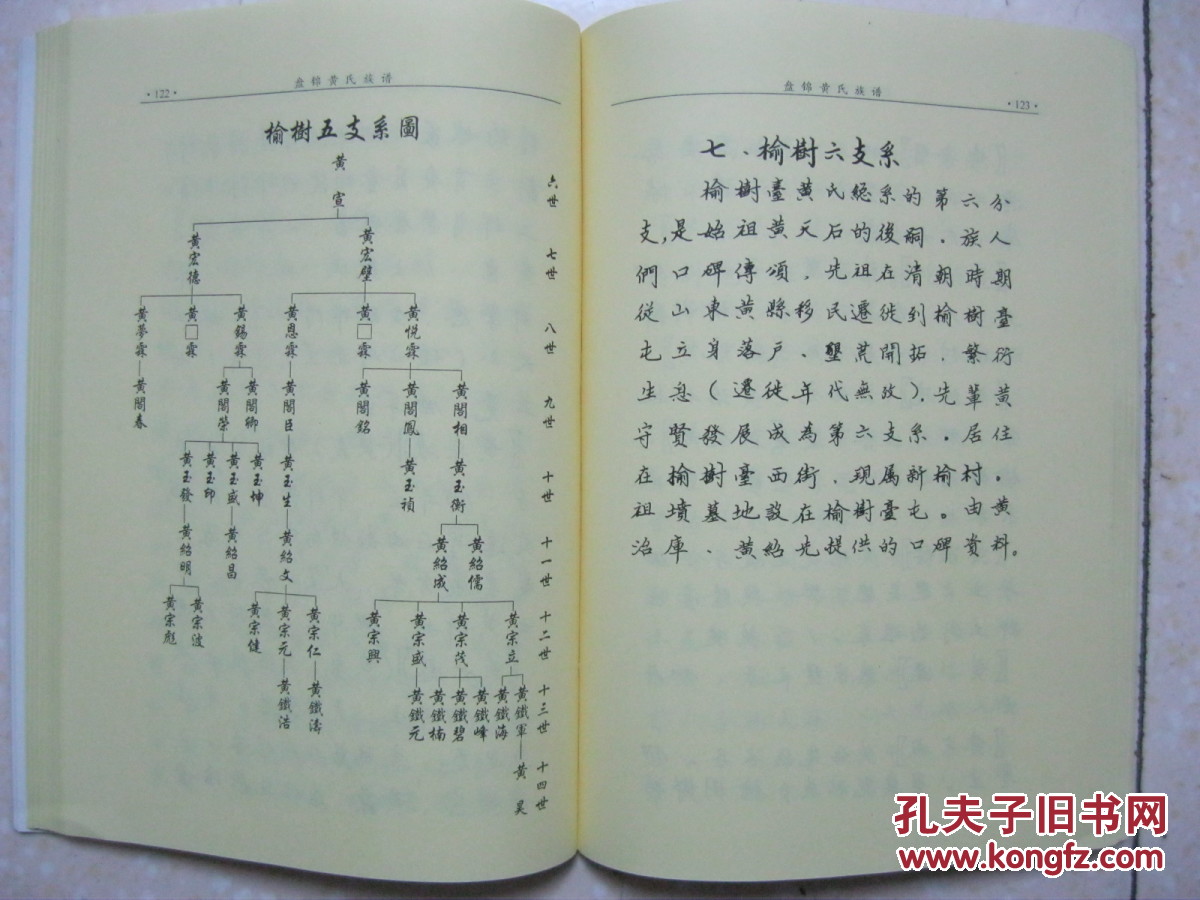 盘锦黄氏族谱
·122·
榆樹五支系圖
黄宣
六世
黄宏德
黄宏壁
七世
黄夢霖
黄□霖
黄錫霖
黄恩霖
黄□霖
黄悦霖
八世
黄閣春
黄閣榮
黄閣卿
黄閣臣
黄閣銘
黄閣鳳
黄閣相
九世
黄玉發
黄玉印
黄玉盛
黄玉坤
黄玉生
黄玉禎
黄玉衡
十世
黄紹明
黄紹昌
黄紹文
黄紹成
黄紹儒
十一世
黄宗彪
黄宗波
黄宗健
黄宗元
黄宗仁
黄宗興
黄宗盛
黄宗茂
黄宗立
十二世
黄鐵浩
黄鐵濤
黄鐵元
黄鐵楠
黄鐵碧
黄鐵峰
黄鐵海
黄鐵軍
十三世
黄昊
十四世
盘锦黄氏族谱
·123·
七、榆樹六支系
榆樹臺黄氏總系的第六分
支,是始祖黄天石的後嗣.族人
們口碑傳頌,先祖在清朝時期
從山東黄縣移民遷徙到榆樹臺
屯立身落戶、墾荒開拓,繁衍
生息(遷徙年代無攷),先輩黄
守賢發展成為第六支系.居住
在榆樹臺西街,現属新榆村.
祖墳墓地設在榆樹臺屯。由黄
治庫、黄紹先提供的口碑資料。
孔夫子旧书网
www.kongfz.com